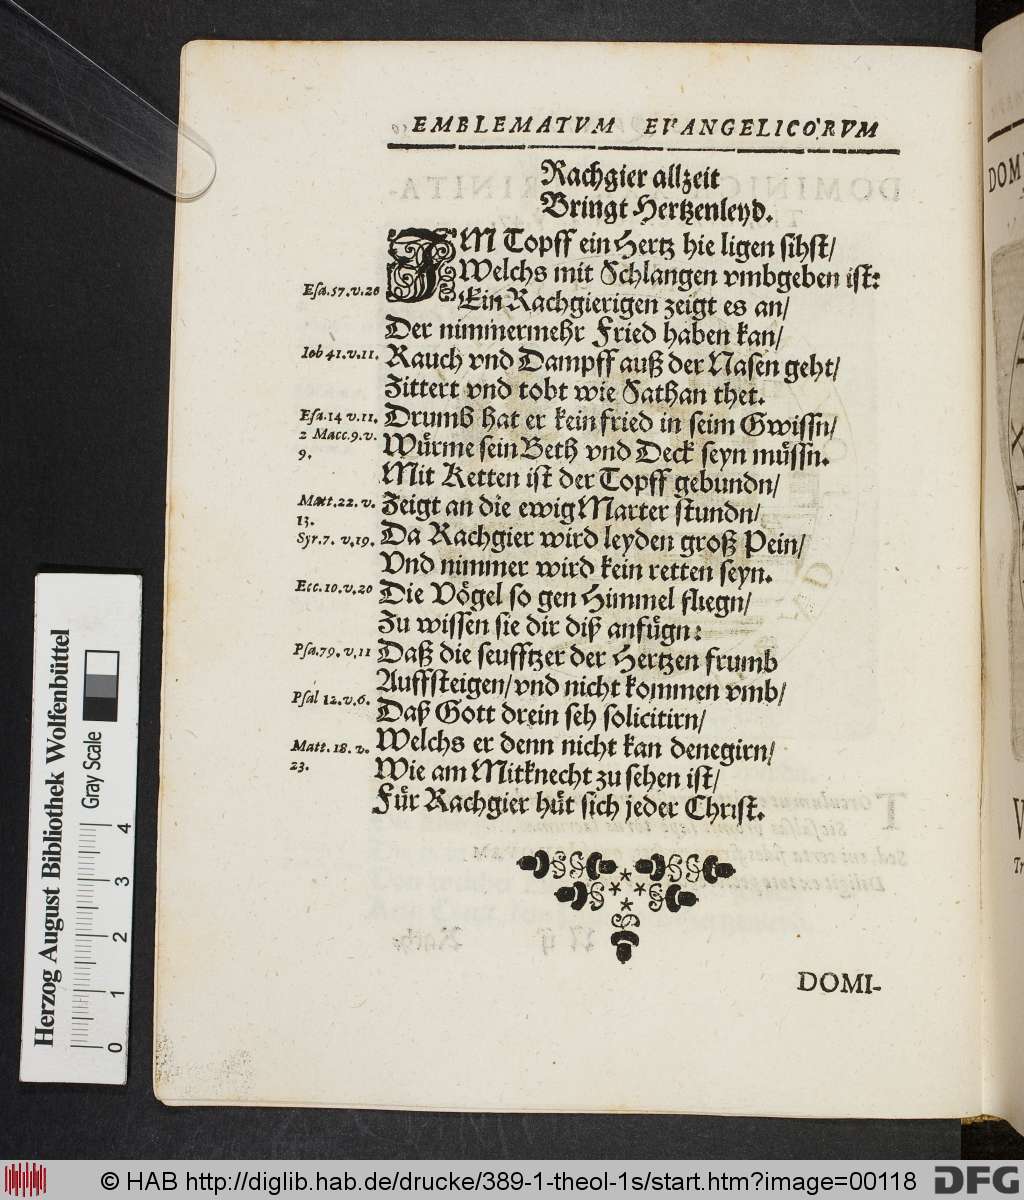 EMBLEMATVM EVANGELICORVM
Rachgier allzeit
Bringt Hertzenleyd.
IM Topff ein Hertz hie ligen sihst/
Welchs mit Schlangen vmbgeben ist:
Esa. 57. v. 20
Ein Rachgierigen zeigt es an/
Der nimmermehr Fried haben kan/
Iob 41. v. 11.
Rauch vnd Dampff auß der Nasen geht/
Zittert vnd tobt wie Sathan thet.
Esa. 14 v. 11.
Drumb hat er kein fried in seim Gwissn/
2 Macc. 9. v.
9.
Wuͤrme sein Beth vnd Deck seyn muͤssn.
Mit Ketten ist der Topff gebundn/
Matt. 22. v.
13.
Zeigt an die ewig Marter stundn/
Syr. 7. v. 19.
Da Rachgier wird leyden groß Pein/
Vnd nimmer wird kein retten seyn.
Ecc. 10. v. 20
Die Voͤgel so gen Himmel fliegn/
Zu wissen sie dir diß anfuͤgn:
Psa. 79. v. 11
Daß die seufftzer der Hertzen frumb
Auffsteigen/ vnd nicht kommen vmb/
Psal 12. v. 6.
Daß Gott drein seh solicitirn/
Matt. 18. v.
23.
Welchs er denn nicht kan denegirn/
Wie am Mitknecht zu sehen ist/
Fuͤr Rachgier huͤt sich jeder Christ.
DOMI-
Herzog August Bibliothek Wolfenbüttel
Gray Scale
0 1 2 3 4
© HAB http://diglib.hab.de/drucke/389-1-theol-1s/start.htm?image=00118
DFG